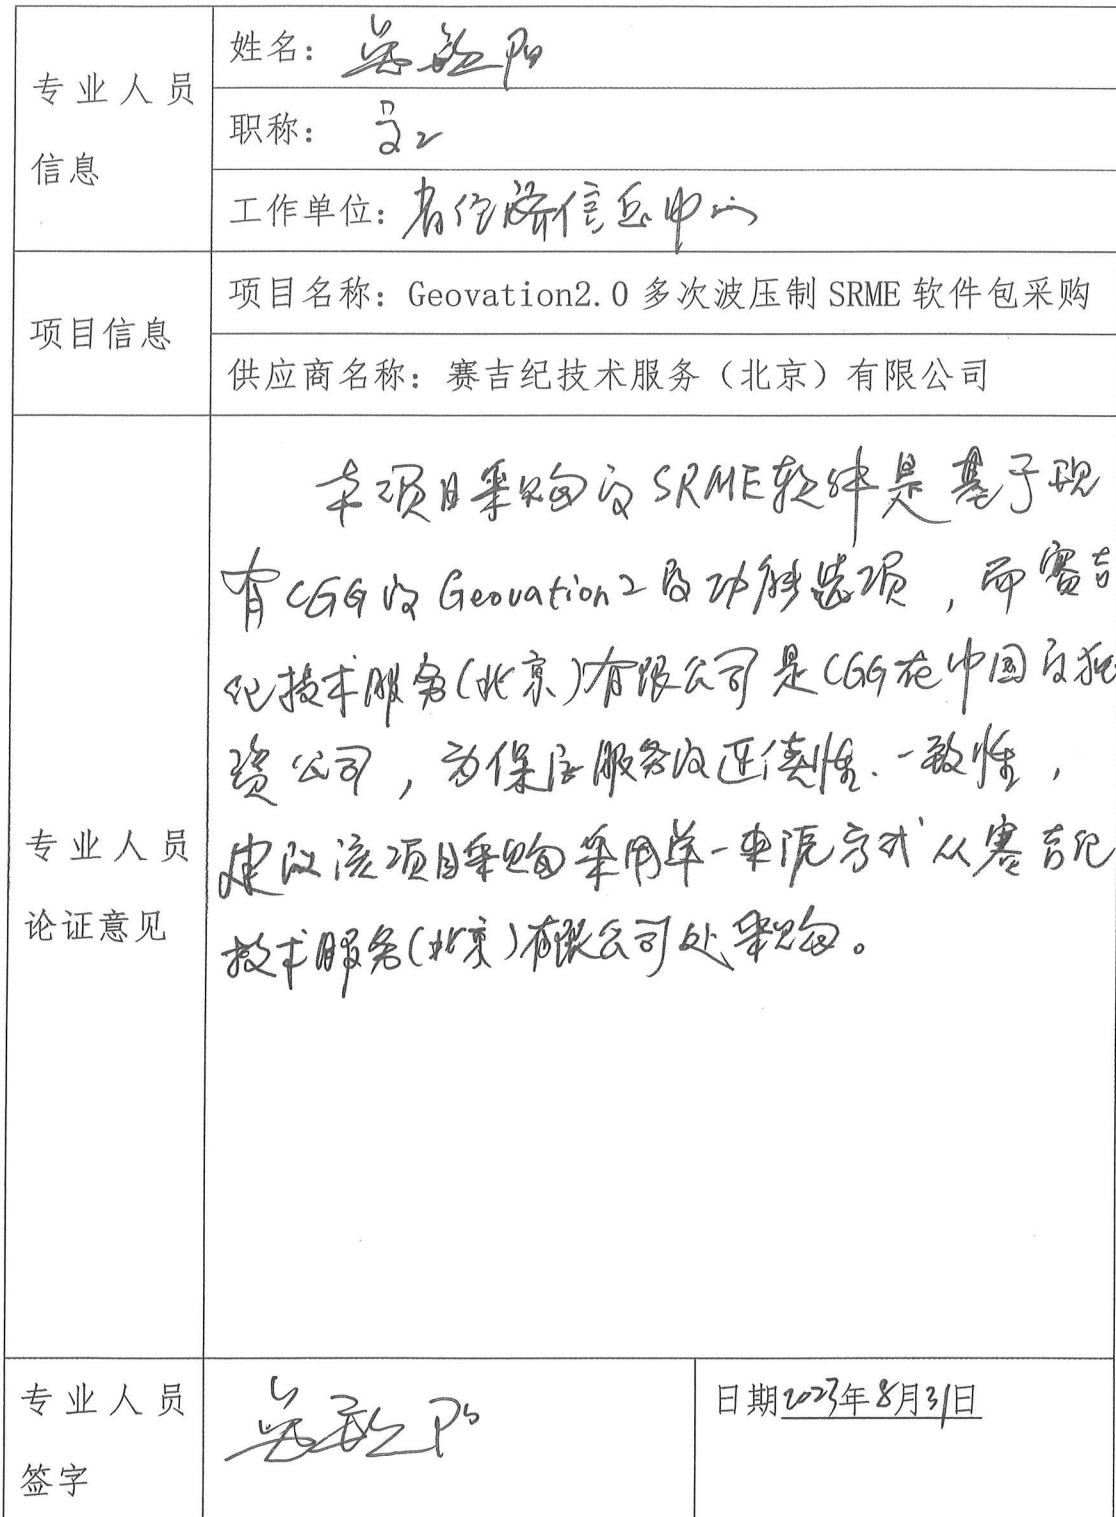 专业人员
信息
姓名：
职称：高工
工作单位：省经济信息中心
项目信息
项目名称：Geovation2.0多次波压制SRME软件包采购
供应商名称：赛吉纪技术服务（北京）有限公司
专业人员
论证意见
本项目采购的SRME软件是基于现
有CGG的Geovation2的功能选项，而赛吉
纪技术服务(北京)有限公司是CGG在中国的独
资公司，为保证服务的延续性、一致性，
建议该项目采购采用单一来源方式从赛吉纪
技术服务(北京)有限公司处采购。
专业人员
签字
日期2023年8月31日